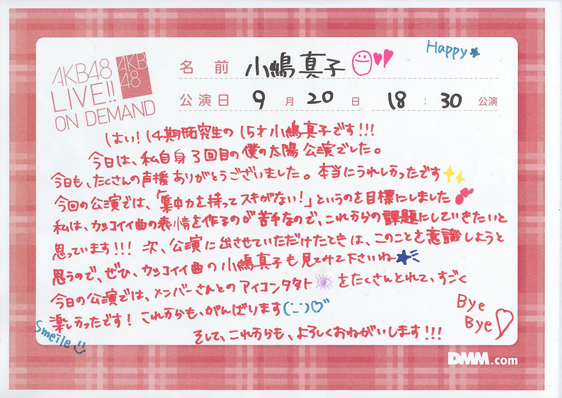 Happy
AKB48
LIVE!!
ON DEMAND
AKB
48
名前 小嶋真子
公演日 9月20日 18:30公演
はい！14期研究生の15才小嶋真子です!!!
今日は、私自身3回目の僕の太陽公演でした。
今日も、たくさんの声援ありがとうございました。本当にうれしかったです
今回の公演では、「集中力を持ってスキがない！」というのを目標にしました
私は、カッコイイ曲の表情を作るのが苦手なので、これからの課題にしていきたいと
思っています!!! 次、公演に出させていただけたときは、このことを意識しようと
思うので、ぜひ、カッコイイ曲の小嶋真子も見てて下さいね
今日の公演では、メンバーさんとのアイコンタクトをたくさんとれて、すごく
楽しかったです！これからも、がんばります
そして、これからも、よろしくおねがいします!!!
Bye
Bye
Smeile
DMM.com